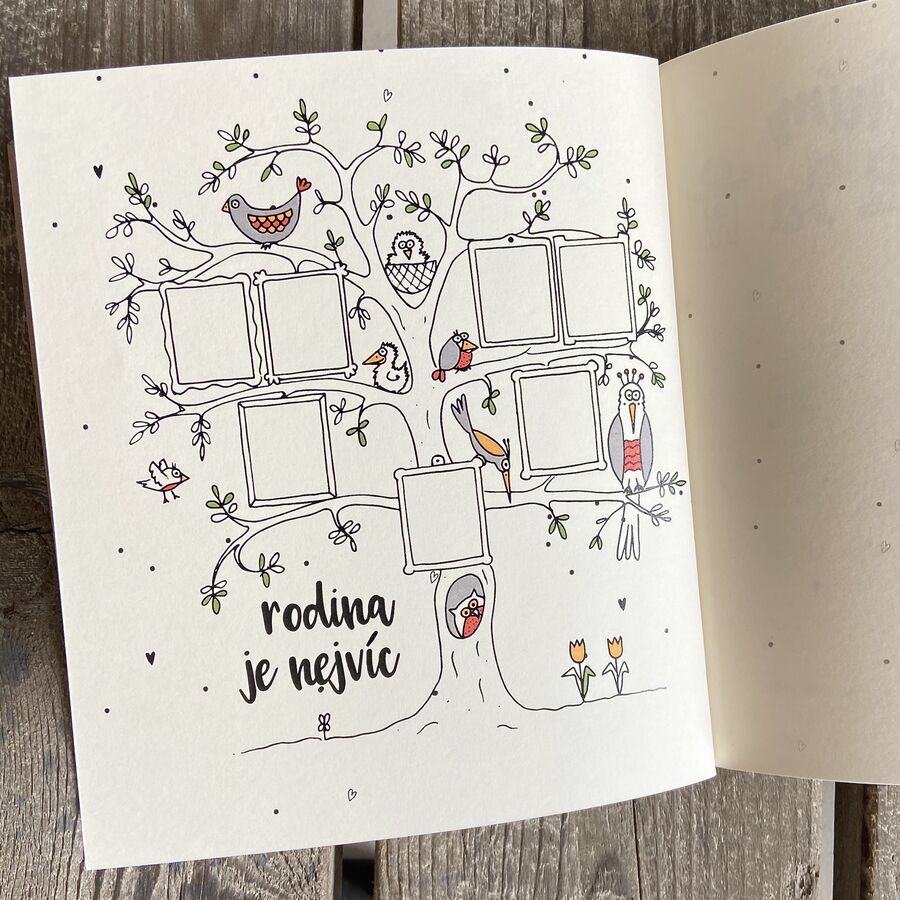 rodina
je nejvíc